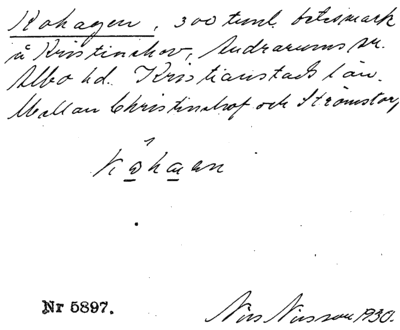 Kohagen, 300 tunl. betesmark
å Kristinehov, Andrarums sn.
Albo hd. Kristianstads län.
Mellan Christinehof och Strömstorp
Nr 5897.
Nils Nilsson 1930.